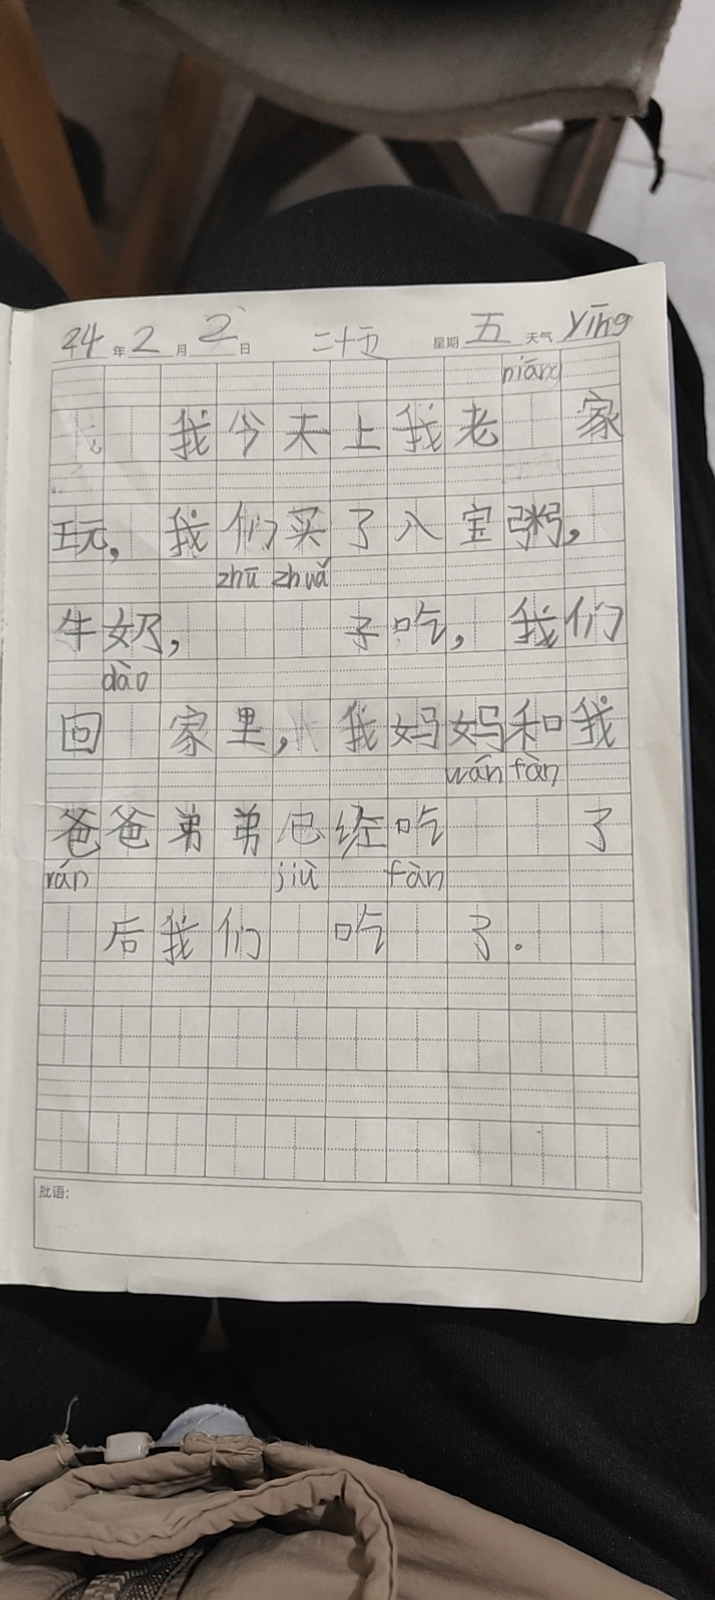 24年2月2日 二十五 星期五 天气yīng
niāng
我今天上我老 家
玩，我们买了入宝粥，
zhū zhuǎ
牛奶， 子吃，我们
dào
回 家里，我妈妈和我
wán fàn
爸爸弟弟已经吃 了
rán jiù fàn
后我们 吃 了.
批语: